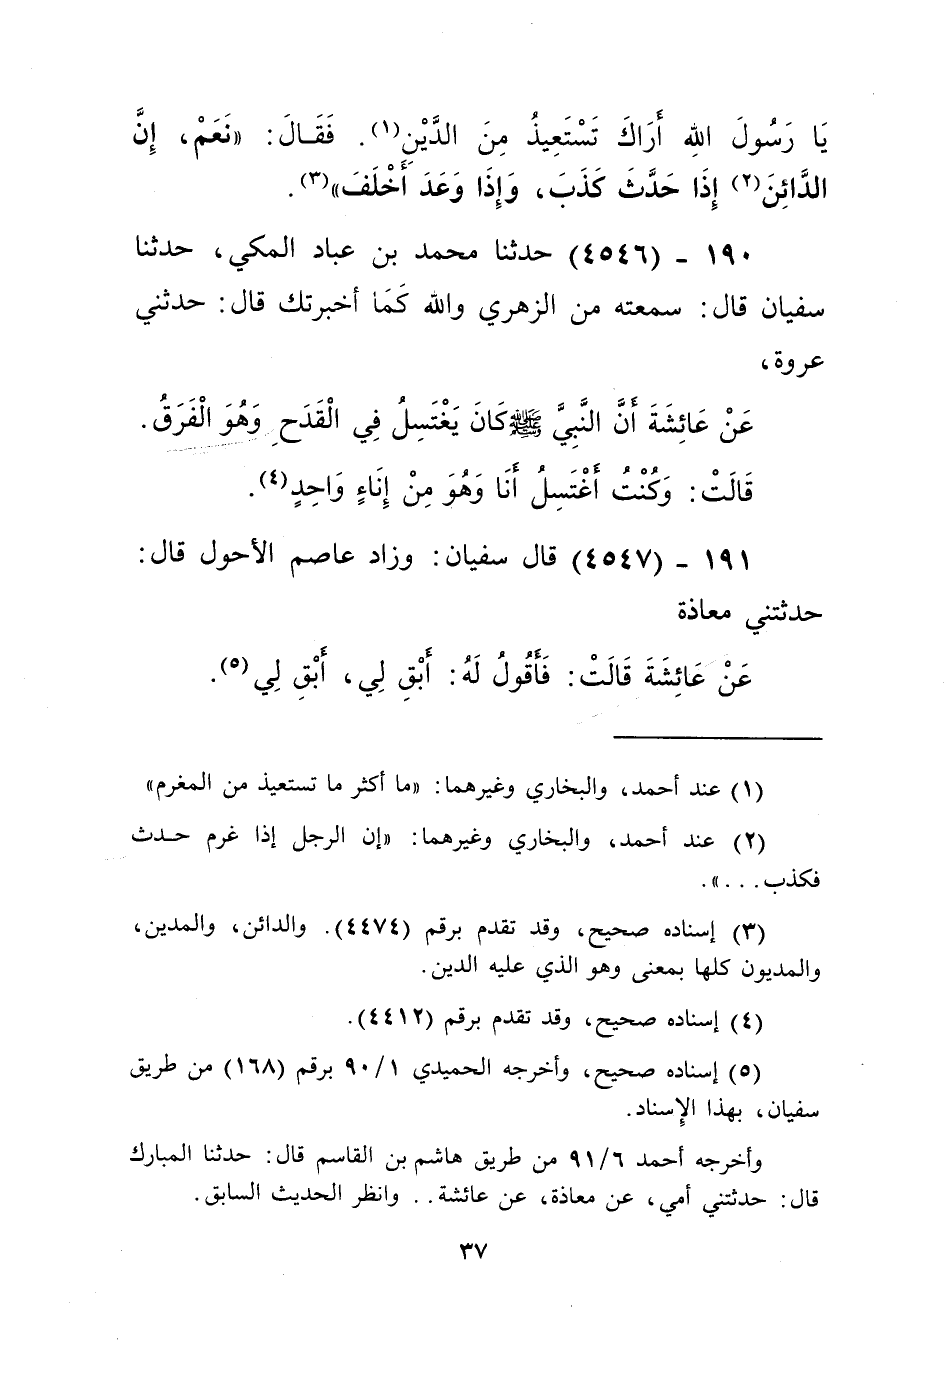 يَا رَسُولَ اللهِ أَرَاكَ تَسْتَعِيذُ مِنَ الدَّيْنِ(١). فَقَالَ: «نَعَمْ، إِنَّ
الدَّائِنَ(٢) إِذَا حَدَّثَ كَذَبَ، وَإِذَا وَعَدَ أَخْلَفَ»(٣).
١٩٠ - (٤٥٤٦) حدثنا محمد بن عباد المكي، حدثنا
سفيان قال: سمعته من الزهري والله كَمَا أخبرتك قال: حدثني
عروة،
عَنْ عَائِشَةَ أَنَّ النَّبِيَّ ﷺ كَانَ يَغْتَسِلُ فِي الْقَدَحِ وَهُوَ الْفَرَقُ.
قَالَتْ: وَكُنْتُ أَغْتَسِلُ أَنَا وَهُوَ مِنْ إِنَاءٍ وَاحِدٍ(٤).
١٩١ - (٤٥٤٧) قال سفيان: وزاد عاصم الأحول قال:
حدثتني معاذة
عَنْ عَائِشَةَ قَالَتْ: فَأَقُولُ لَهُ: أَبْقِ لِي، أَبْقِ لِي(٥).
(١) عند أحمد، والبخاري وغيرهما: «ما أكثر ما تستعيذ من المغرم»
(٢) عند أحمد، والبخاري وغيرهما: «إن الرجل إذا غرم حدث
فكذب...».
(٣) إسناده صحيح، وقد تقدم برقم (٤٤٧٤). والدائن، والمدين،
والمديون كلها بمعنى وهو الذي عليه الدين.
(٤) إسناده صحيح، وقد تقدم برقم (٤٤١٢).
(٥) إسناده صحيح، وأخرجه الحميدي ٩٠/١ برقم (١٦٨) من طريق
سفيان، بهذا الإسناد.
وأخرجه أحمد ٩١/٦ من طريق هاشم بن القاسم قال: حدثنا المبارك
قال: حدثتني أمي، عن معاذة، عن عائشة.. وانظر الحديث السابق.
٣٧